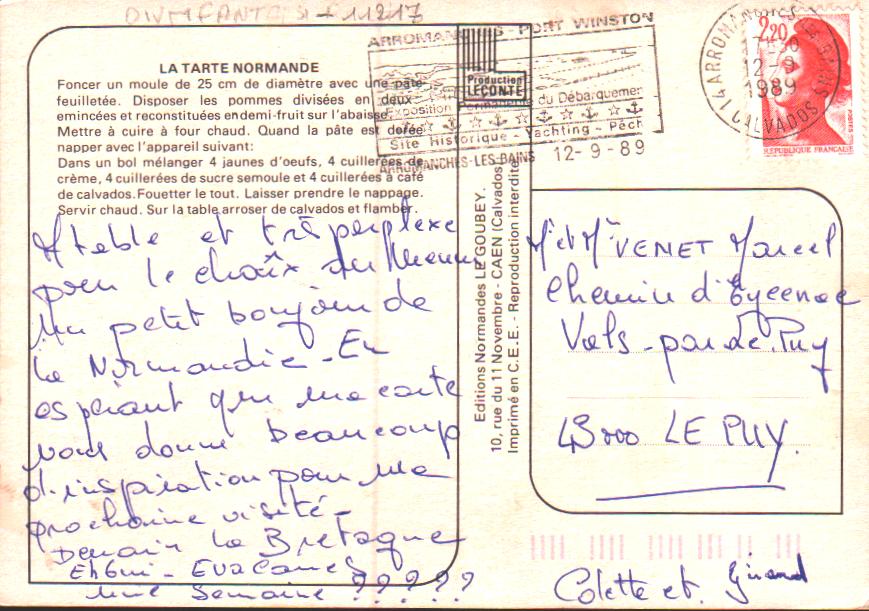 ARROMANCHES - PORT WINSTON
Exposition Permanente du Débarquement
Site Historique - Yachting - Pêch
ARROMANCHES-LES-BAINS 12-9-89
14 ARROMANCHES LES BAINS
12-9
1989
CALVADOS
2,20
POSTES
REPUBLIQUE FRANCAISE
Production
LECONTE
LA TARTE NORMANDE
Foncer un moule de 25 cm de diamètre avec une pâte
feuilletée. Disposer les pommes divisées en deux
emincées et reconstituées en demi-fruit sur l'abaisse.
Mettre à cuire à four chaud. Quand la pâte est dorée
napper avec l'appareil suivant:
Dans un bol mélanger 4 jaunes d'oeufs, 4 cuillerées de
crème, 4 cuillerées de sucre semoule et 4 cuillerées à café
de calvados. Fouetter le tout. Laisser prendre le nappage.
Servir chaud. Sur la table arroser de calvados et flamber.
A table et très perplexe
pour le choix du Menu
Un petit bonjour de
la Normandie - En
espérant que ma carte
vous donne beaucoup
d'inspiration pour ma
prochaine visite -
Demain la Bretagne
Eh oui - Evacances
une Semaine ? ? ? ? ?
Editions Normandes LE GOUBEY.
10, rue du 11 Novembre - CAEN (Calvados
Imprimé en C.E.E. - Reproduction interdite
Mr et Me VENET Marcel
Chemin d'Eycenac
Vals - par Le Puy
43000 LE PUY.
Colette et Girard